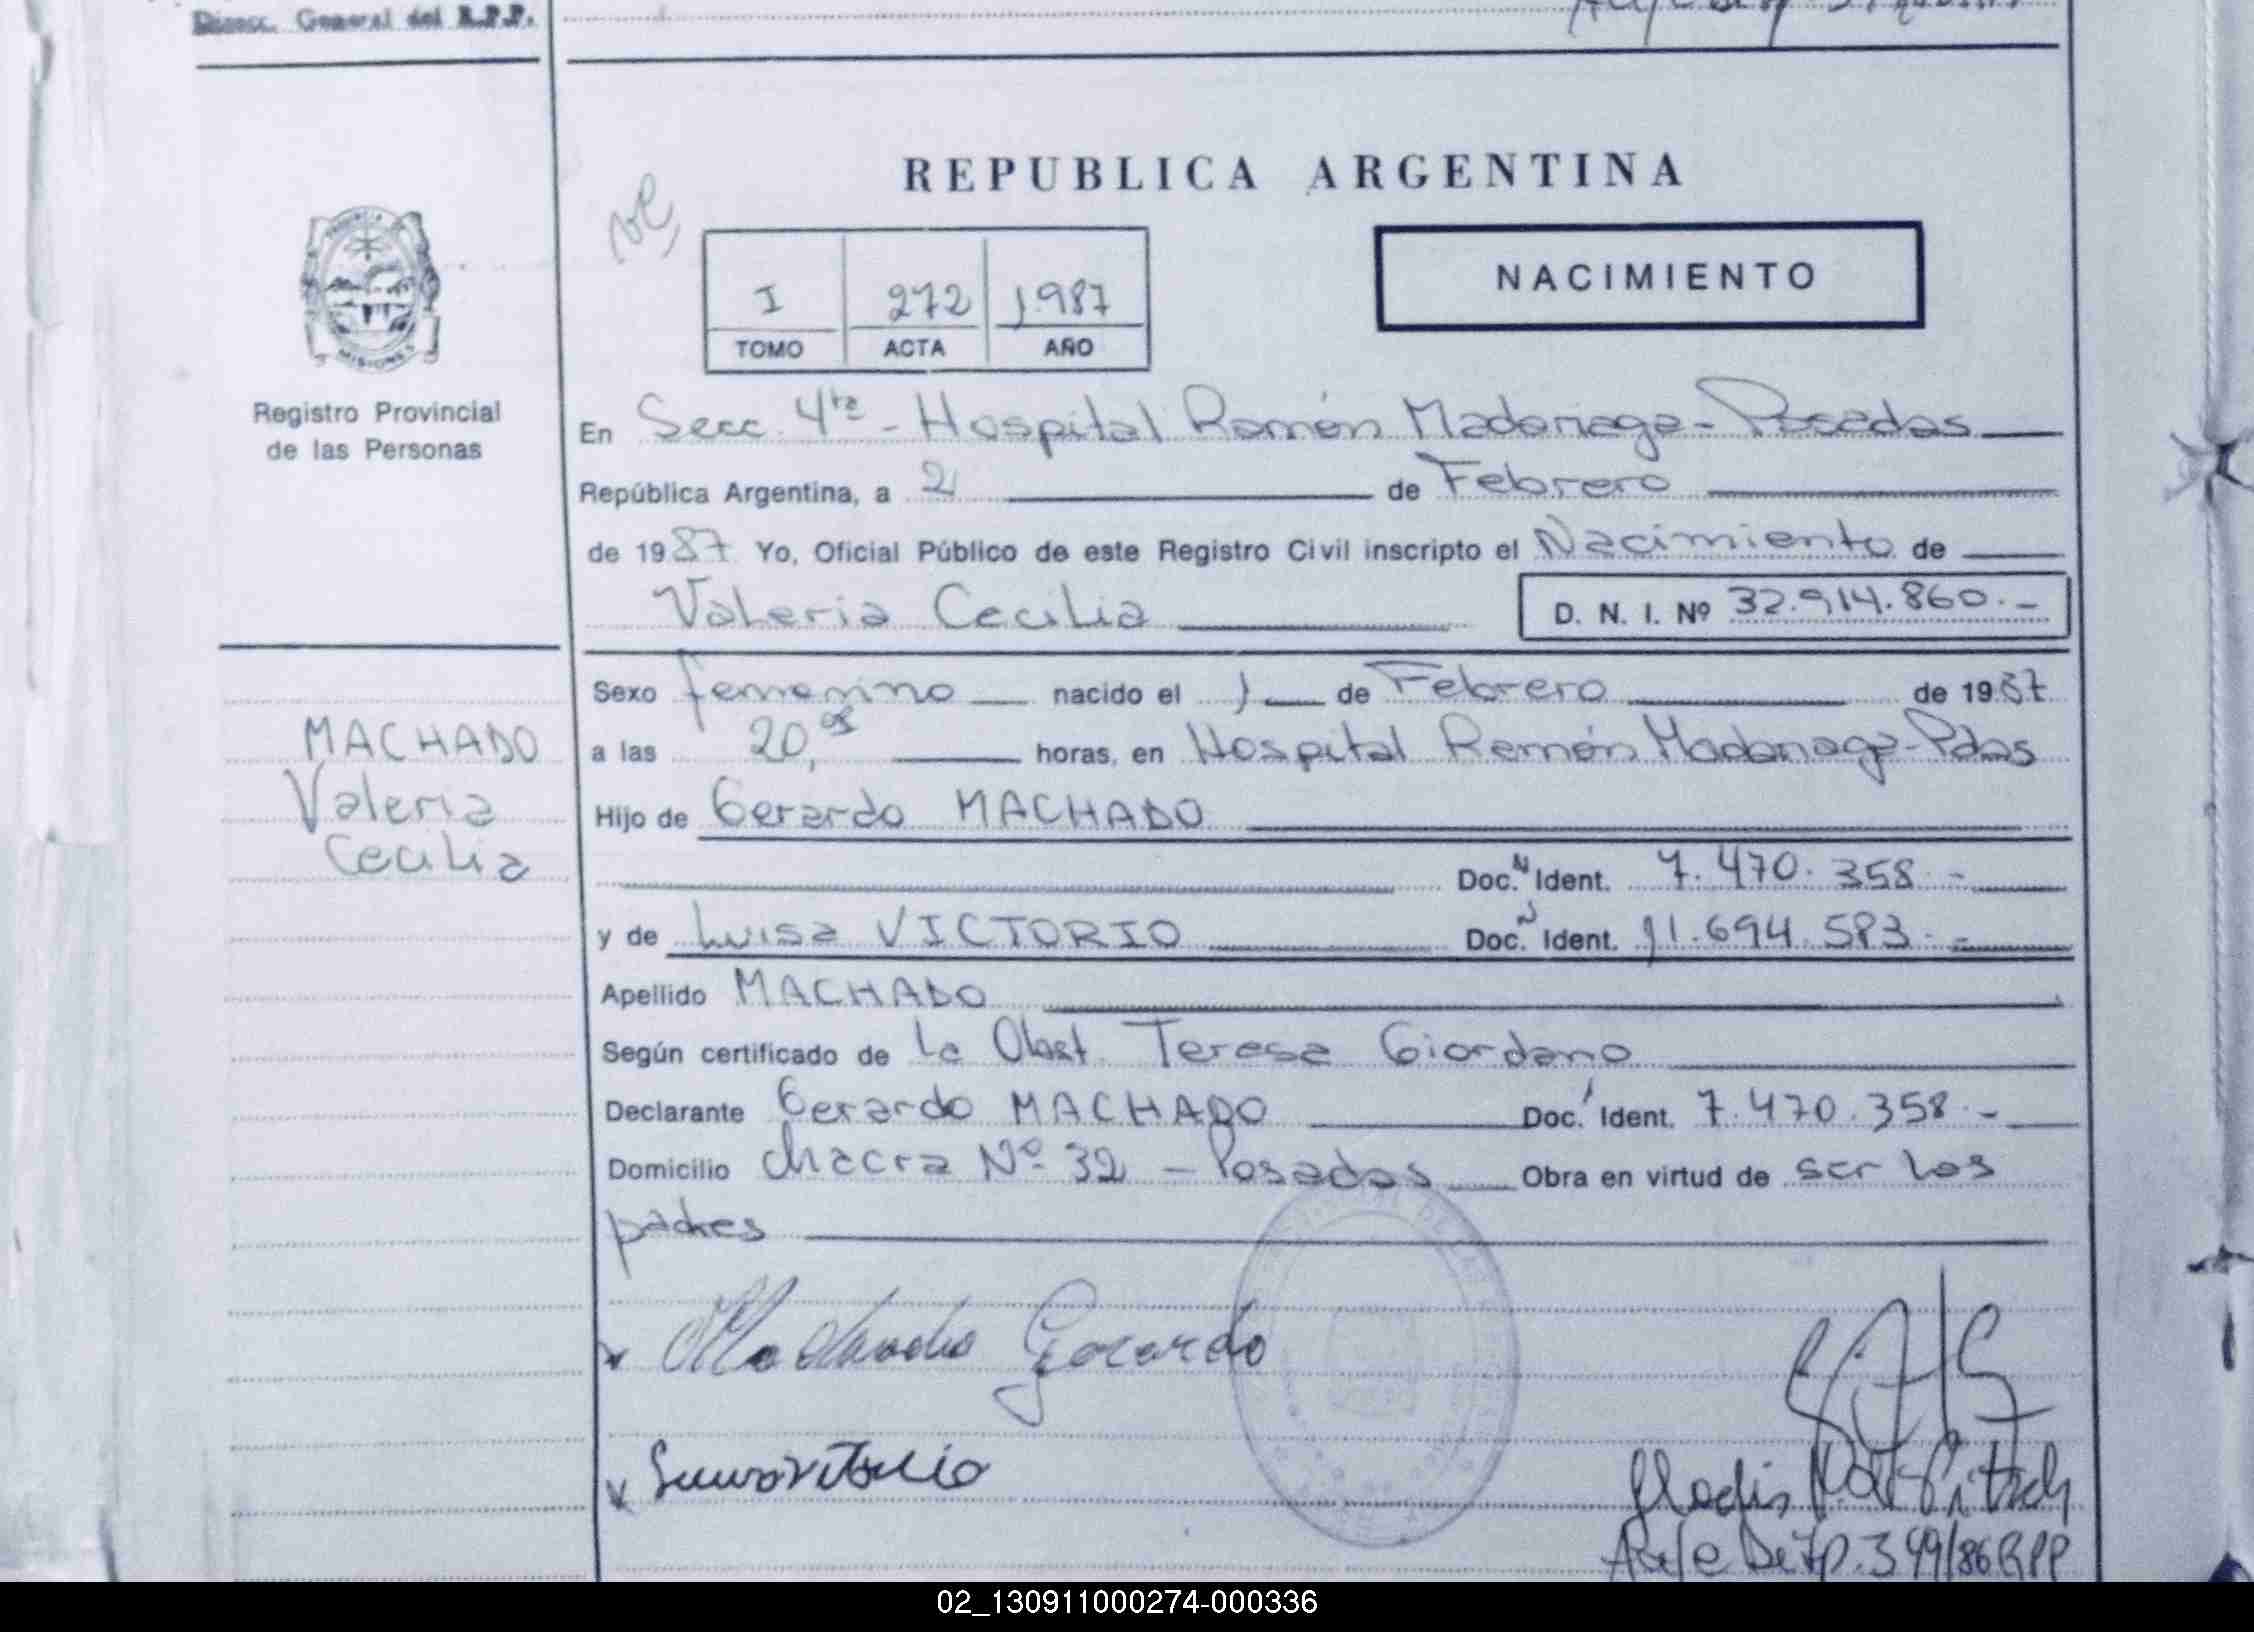 Direcc. General del R.P.P.
REPUBLICA ARGENTINA
PROVINCIA
MISIONES
Registro Provincial
de las Personas
I 272 1.987
TOMO ACTA AÑO
NACIMIENTO
En Secc. 4ta - Hospital Ramón Madariaga - Posadas
República Argentina, a 2 de Febrero
de 1987 Yo, Oficial Público de este Registro Civil inscripto el Nacimiento de
Valeria Cecilia D. N. I. Nº 32.914.860.-
MACHADO
Valeria
Cecilia
Sexo femenino nacido el 1 de Febrero de 1987
a las 20,05 horas, en Hospital Ramón Madariaga - Pdas
Hijo de Gerardo MACHADO
Doc. N Ident. 7.470.358.-
y de Luisa VICTORIO Doc. N Ident. 11.694.583.-
Apellido MACHADO
Según certificado de la Obst. Teresa Giordano
Declarante Gerardo MACHADO Doc. Ident. 7.470.358.-
Domicilio Chacra Nº 32 - Posadas Obra en virtud de ser los
padres
Machado Gerardo
02_130911000274-000336